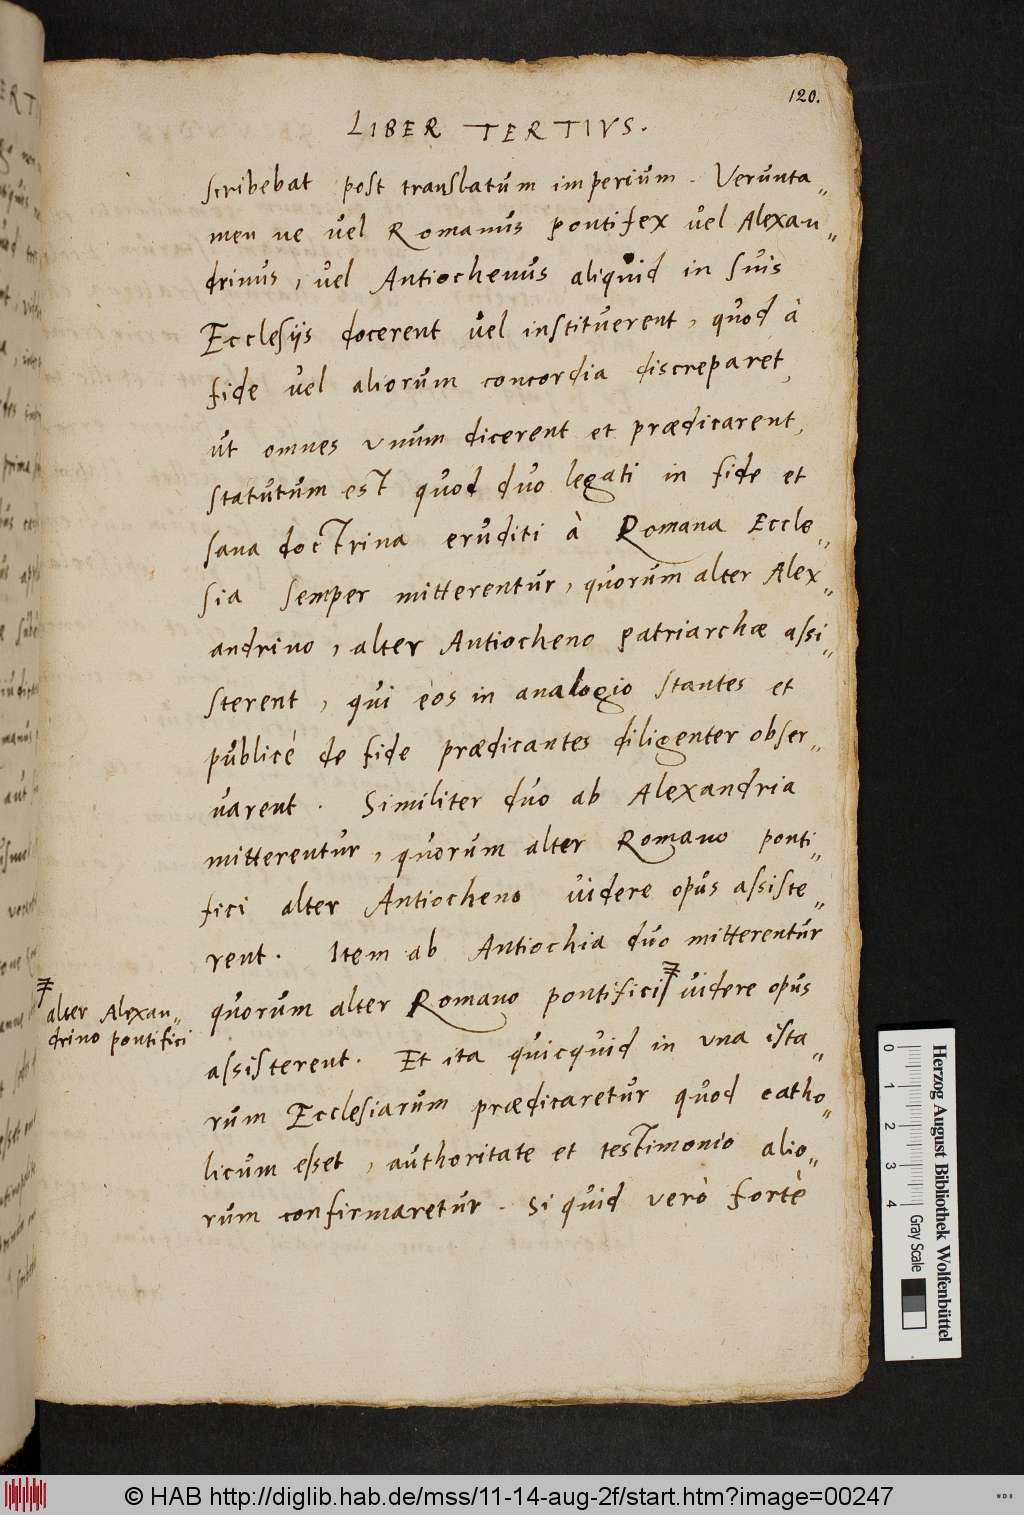 120.
LIBER TERTIVS.
scribebat post translatum imperium. Verunta„
men ne vel Romanus pontifex vel Alexan„
drinus, vel Antiochenus aliquid in suis
Ecclesijs docerent vel instituerent, quod à
fide vel aliorum concordia discreparet,
ut omnes vnum dicerent et prædicarent,
statutum est quod duo legati in fide et
sana doctrina eruditi à Romana Eccle„
sia semper mitterentur, quorum alter Alex„
andrino, alter Antiocheno patriarchæ assi„
sterent, qui eos in analogio stantes et
publicè de fide prædicantes diligenter obser„
varent. Similiter duo ab Alexandria
mitterentur, quorum alter Romano ponti„
fici alter Antiocheno videre opus assiste„
rent. Item ab Antiochia duo mitterentur
quorum alter Romano pontifici videre opus
alter Alexan„
drino pontifici
assisterent. Et ita quicquid in vna ista„
rum Ecclesiarum prædicaretur quod catho„
licum esset, authoritate et testimonio alio„
rum confirmaretur. Si quid verò fortè
Herzog August Bibliothek Wolfenbüttel
0 1 2 3 4 Gray Scale
© HAB http://diglib.hab.de/mss/11-14-aug-2f/start.htm?image=00247